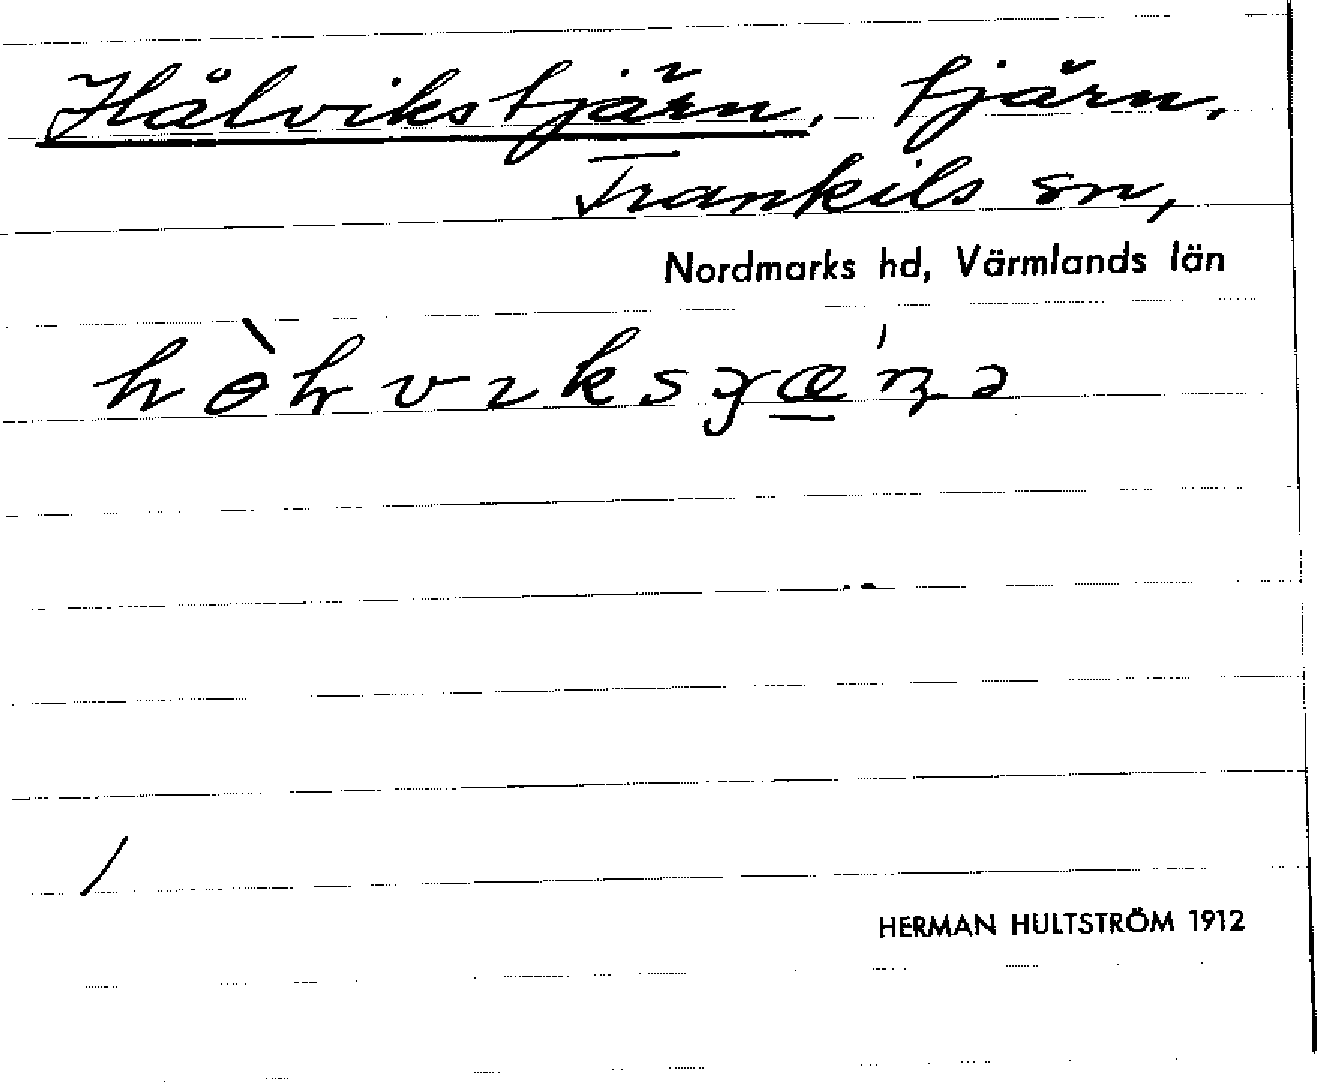 Hålvikstjärn, tjärn,
Trankils sn,
Nordmarks hd, Värmlands län
HERMAN HULTSTRÖM 1912